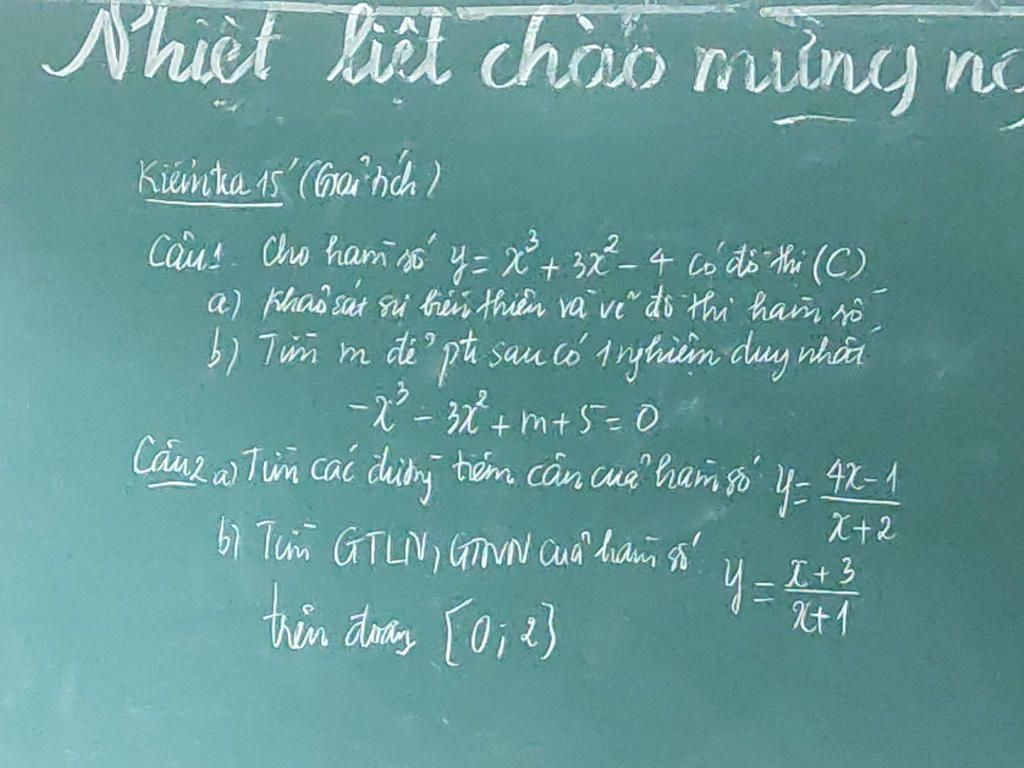 Nhiệt liệt chào mừng
Kiểm tra 15' (Giải tích)
Câu 1. Cho hàm số y = x³ + 3x² - 4 có đồ thị (C)
a) Khảo sát sự biến thiên và vẽ đồ thị hàm số
b) Tìm m để pt sau có 1 nghiệm duy nhất
-x³ - 3x² + m + 5 = 0
Câu 2 a) Tìm các đường tiệm cận của hàm số y = (4x-1)/(x+2)
b) Tìm GTLN, GTNN của hàm số y = (x+3)/(x+1)
trên đoạn [0; 2]